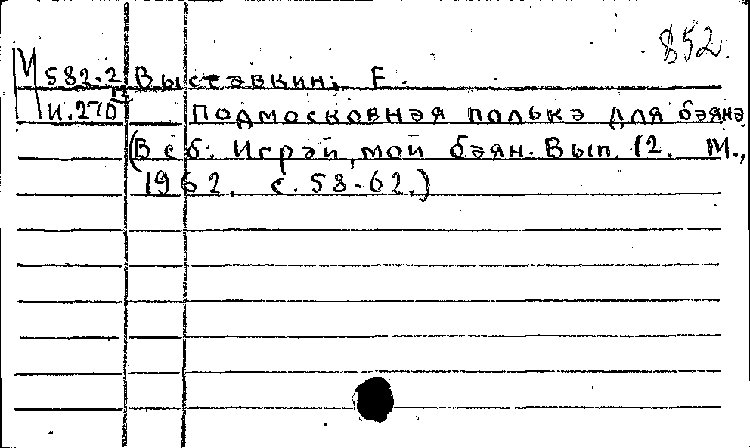 852.
М 582.2 Выставкин, Е.
И.270 Подмосковная полька для баяна
(В сб: Играй, мой баян. Вып. 12. М.,
1962. с. 58-62.)